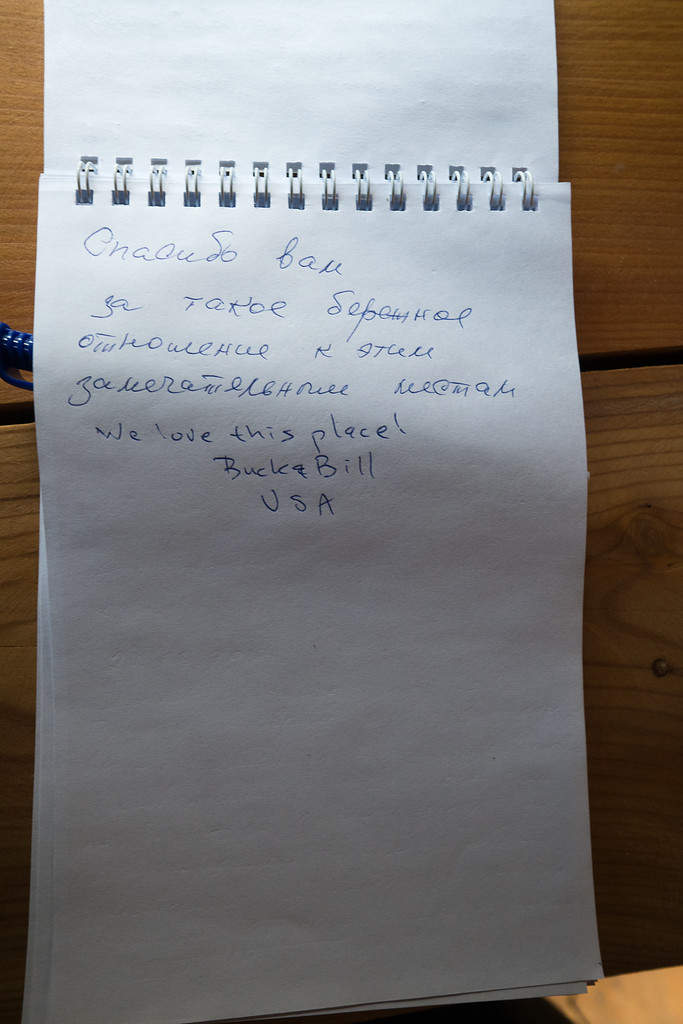 Спасибо вам
за такое бережное
отношение к этим
замечательным местам
We love this place!
Buck & Bill
USA